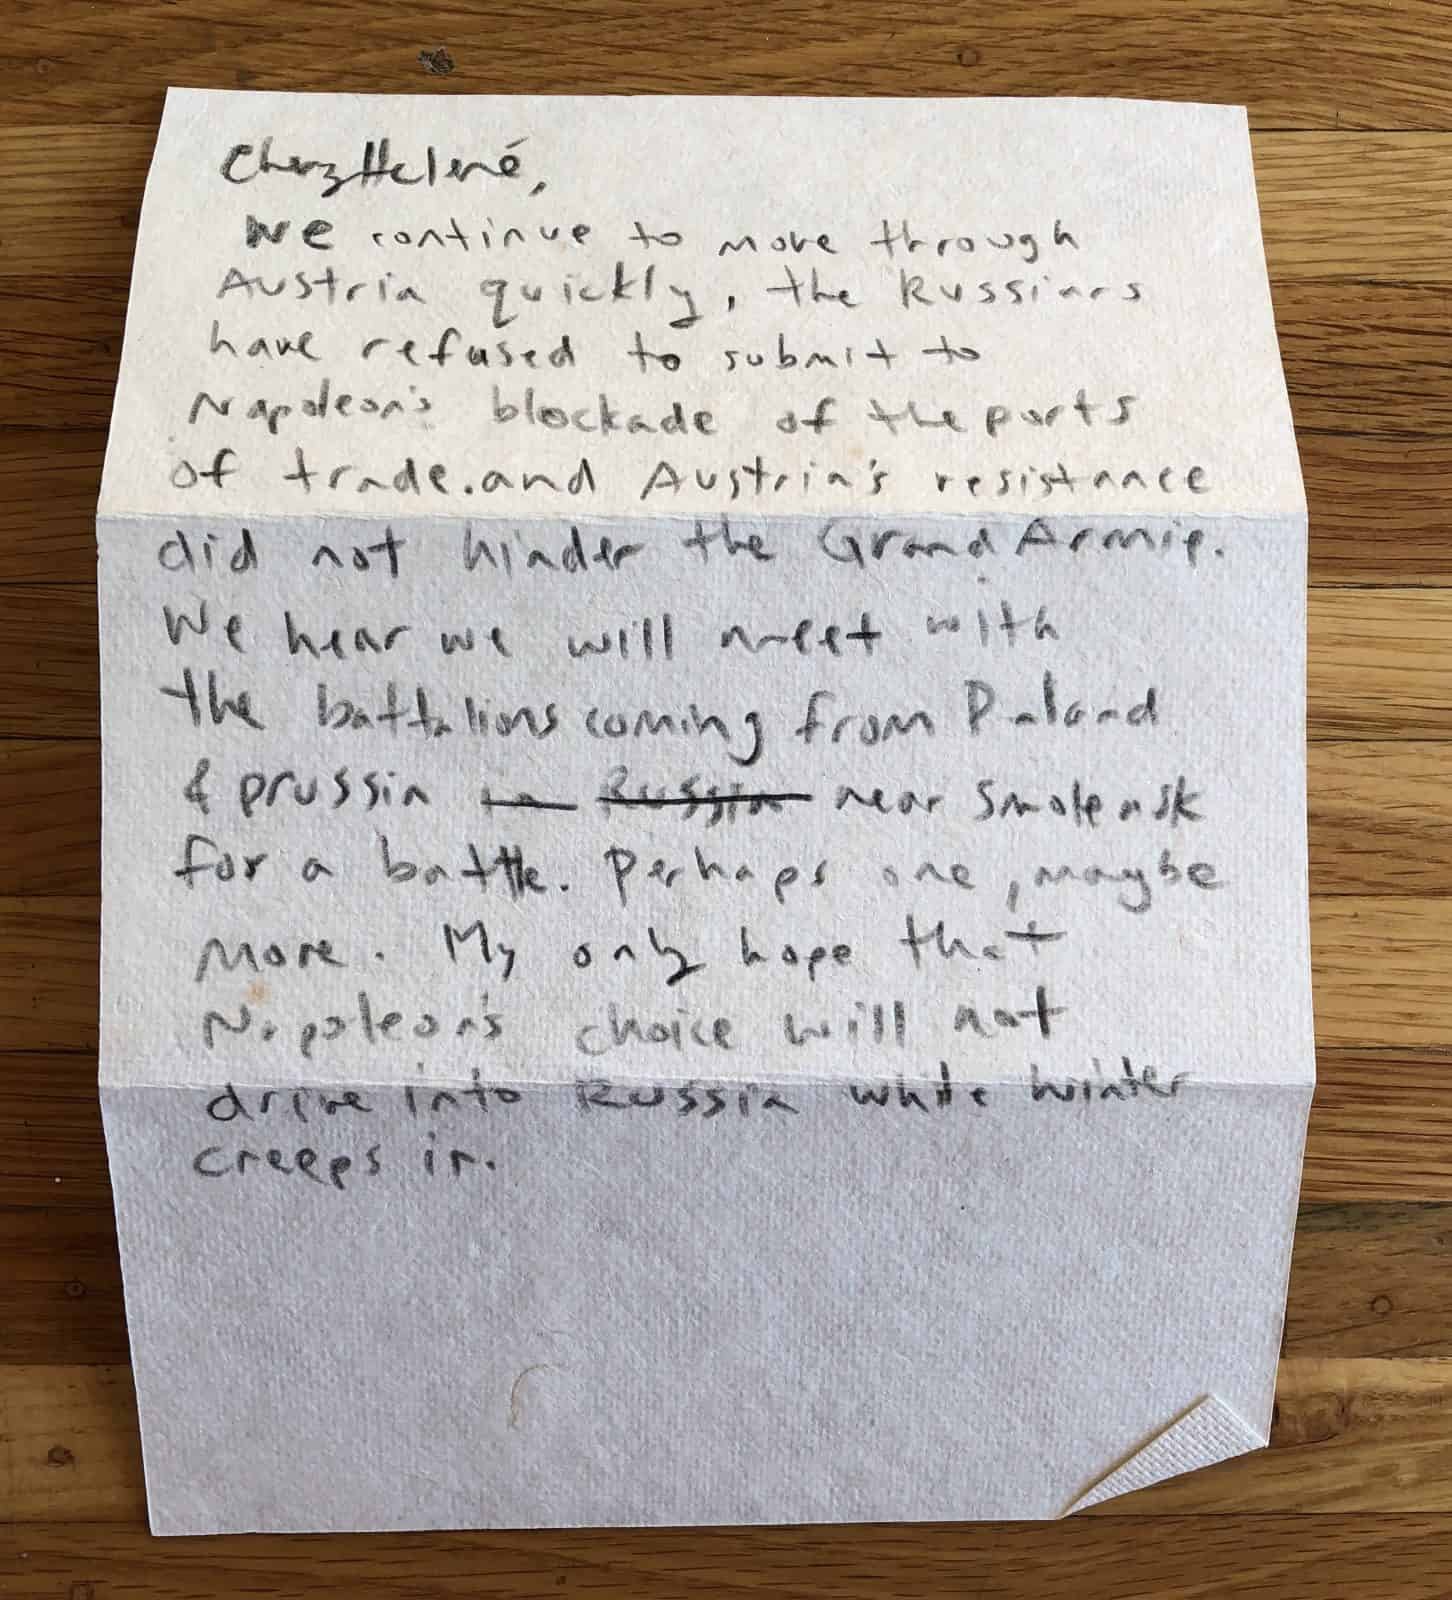 Cherz Helené,
We continue to move through
Austria quickly, the Russians
have refused to submit to
Napoleon's blockade of the ports
of trade. and Austria's resistance
did not hinder the Grand Armie.
We hear we will meet with
the battalions coming from Poland
& prussia in Russia near Smolensk
for a battle. Perhaps one, maybe
more. My only hope that
Napoleon's choice will not
drive into Russia while winter
creeps in.